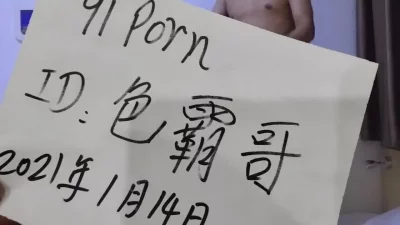 91 Porn
ID: 色霸哥
2021年1月14日